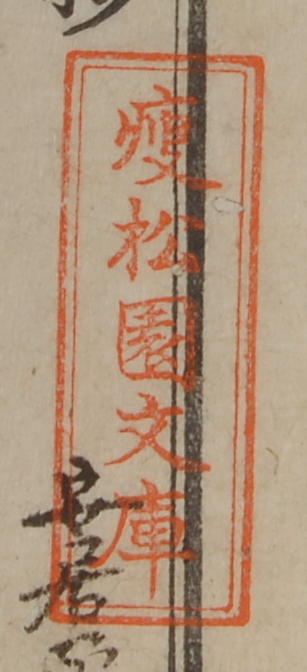 痩松園文庫